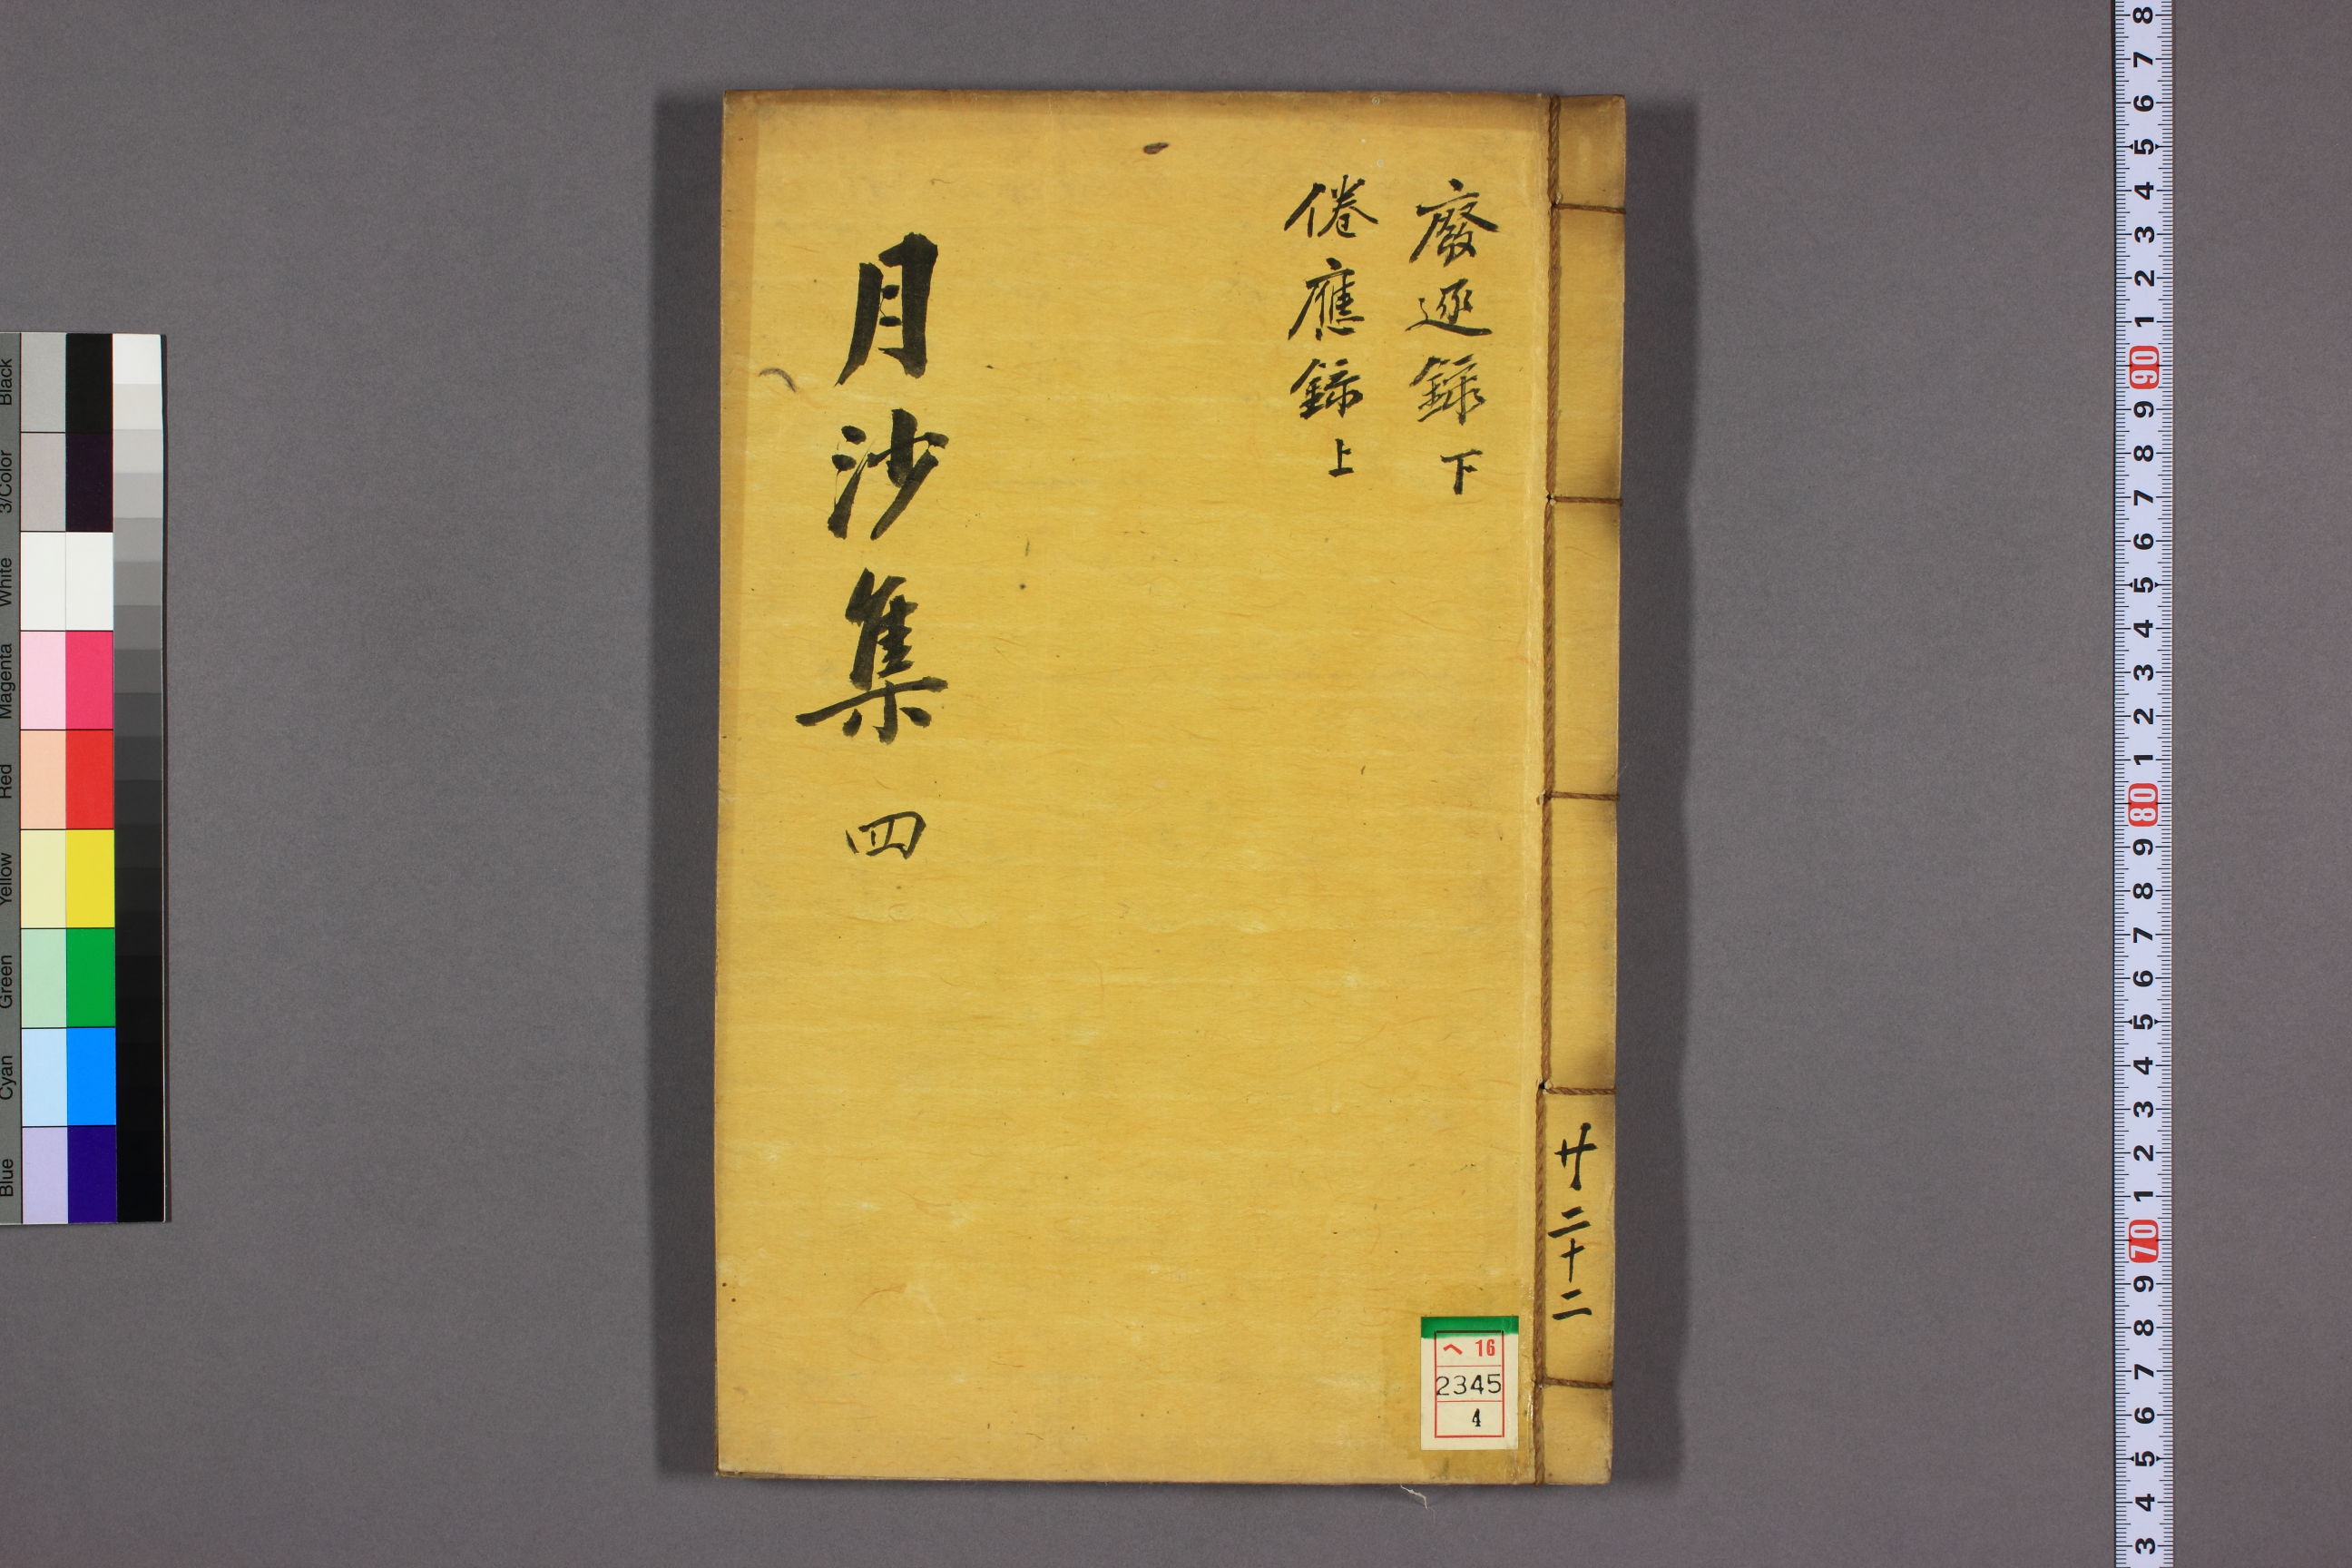 廢逐錄 下
倦應錄 上
月沙集 四
共二十二
ヘ 16
2345
4
Black
3/Color
White
Magenta
Red
Yellow
Green
Cyan
Blue
8 7 6 5 4 3 2 1 90 9 8 7 6 5 4 3 2 1 80 9 8 7 6 5 4 3 2 1 70 9 8 7 6 5 4 3